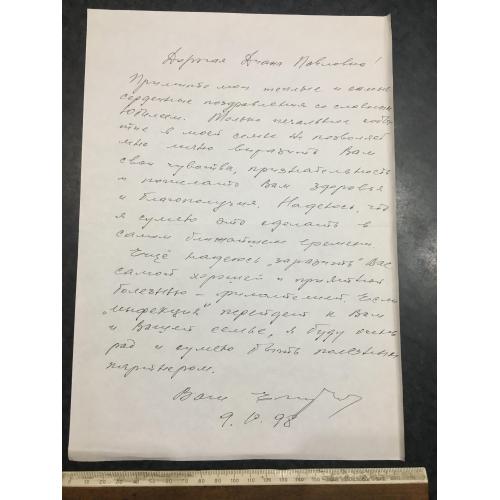 Дорогая Диана Павловна!
Примите мои теплые и самые
сердечные поздравления со славным
Юбилеем. Только печальное собы-
тие в моей семье не позволяет
мне лично выразить Вам
свои чувства, признательность
и пожелать Вам здоровья
и благополучия. Надеюсь, что
я сумею это сделать в
самом ближайшем времени.
Ещё надеюсь „заразить" Вас
самой хорошей и приятной
болезнью – филателией. Если
„инфекция" перейдет к Вам
и Вашей семье, я буду очень
рад и сумею быть полезным
партнером.
Ваш
98